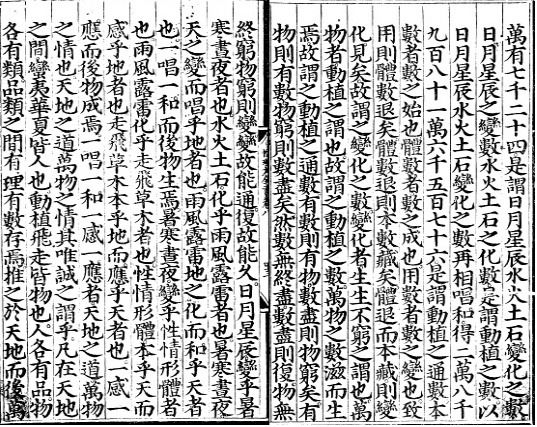 萬有七千二十四是謂日月星辰水火土石變化之數
日月星辰之變數水火土石之化數是謂動植之數以
日月星辰水火土石變化之數再相唱和得二萬八千
九百八十一萬六千五百七十六是謂動植之通數本
數者數之始也體數者數之成也用數者數之變也致
用則體數退矣體數退則本數藏矣體退而本藏則變
化見矣故謂之變化之數變化者生生不窮之謂也萬
物者動植之謂也故謂之動植之數萬物之數滋而生
焉故謂之動植之通數有數則有物數盡則物窮矣有
物則有數物窮則數盡矣然數無終盡數盡則復物無
終窮物窮則變變故能通復故能久日月星辰變乎暑
寒晝夜者也水火土石化乎雨風露雷者也暑寒晝夜
天之變而唱乎地者也雨風露雷地之化而和乎天者
也一唱一和而後物生焉暑寒晝夜變乎性情形體者
也雨風露雷化乎走飛草木者也性情形體本乎天而
感乎地者也走飛草木本乎地而應乎天者也一感一
應而後物成焉一唱一和一感一應者天地之道萬物
之情也天地之道萬物之情其唯誠之謂乎凡在天地
之間蠻夷華夏皆人也動植飛走皆物也人各有品物
各有類品類之間有理有數存焉推之於天地而後萬